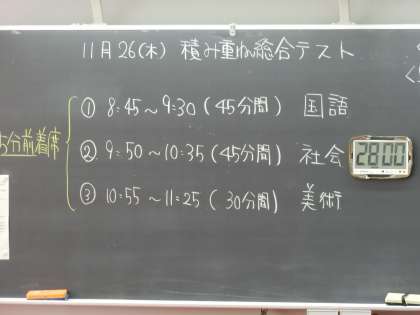 11月26(木) 積み重ね総合テスト
5分前着席
① 8:45～9:30(45分間) 国語
② 9:50～10:35(45分間) 社会
28:00
③ 10:55～11:25(30分間) 美術